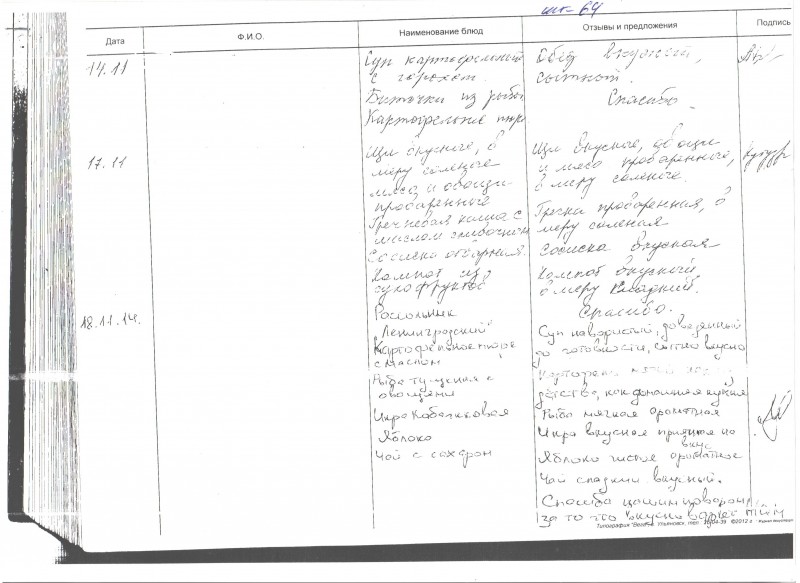 шк-64
Дата Ф.И.О. Наименование блюд Отзывы и предложения Подпись
14.11
Суп картофельный
с горохом.
Биточки из рыбы
Картофельное пюре
Обед вкусный,
сытный.
Спасибо.
17.11
Щи вкусные, в
меру соленые
мясо и овощи
проваренные
Гречневая каша с
маслом сливочным
Сосиска отварная.
Компот из
сухофруктов
Щи вкусные, овощи
и мясо проваренные,
в меру соленые.
Гречка проваренная, в
меру соленая
Сосиска вкусная
Компот вкусный
в меру сладкий.
Спасибо.
18.11.14.
Рассольник
"Ленинградский"
Картофельное пюре
с маслом
Рыба тушеная с
овощами
Икра Кабачковая
Яблоко
Чай с сахаром
Суп наваристый, доведенный
до готовности, сытно вкусно
детства, как домашняя кухня
Рыба мягкая ароматная
Икра вкусная приятная на
вкус
Яблоко чистое ароматное
Чай сладкий вкусный.
Спасибо нашим поварам
за то что вкусно варят
Типография Ульяновск, ©2012 г.